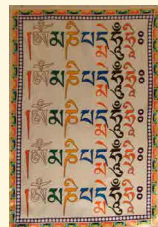 །ཨོཾ་མ་ཎི་པདྨེ་ཧཱུྃ་ཧྲཱིཿ
།ཨོཾ་མ་ཎི་པདྨེ་ཧཱུྃ་ཧྲཱིཿ
།ཨོཾ་མ་ཎི་པདྨེ་ཧཱུྃ་ཧྲཱིཿ
།ཨོཾ་མ་ཎི་པདྨེ་ཧཱུྃ་ཧྲཱིཿ
།ཨོཾ་མ་ཎི་པདྨེ་ཧཱུྃ་ཧྲཱིཿ